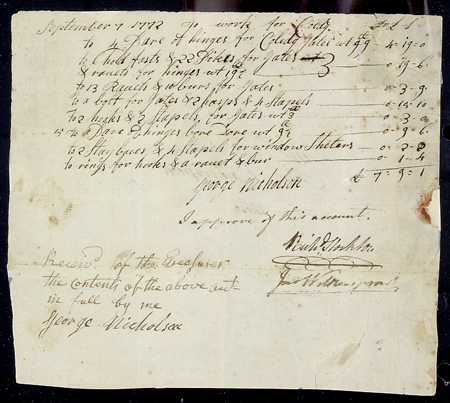 September 7 1772 To work for Coledg
to 4 Pare of hinges for Coledg Gates wt 99 4-19-0
to 6 hold fasts & 22 Pikes for Gates
& rauets for hinges wt 19 0-19-6
to 13 Rauets & burs for Gates 0-3-9
to a bolt for Gates 2 hasps & 4 Stapels 0-10-10
to 2 hooks & 2 Stapels for Gates wt 3 0-3-0
to a Pare of hinges bore Dore wt 9 0-9-6
to 2 Stay & 4 Stapels for window Sheters 0-2-
to rings for hooks & a rauet & bur 0-1-4
George Nicholson 7=9=1
I approve of this account.
Richd Stockton
Jno Witherspoon
Receivd of the Treasurer
the contents of the above act
in full by me
George Nicholson